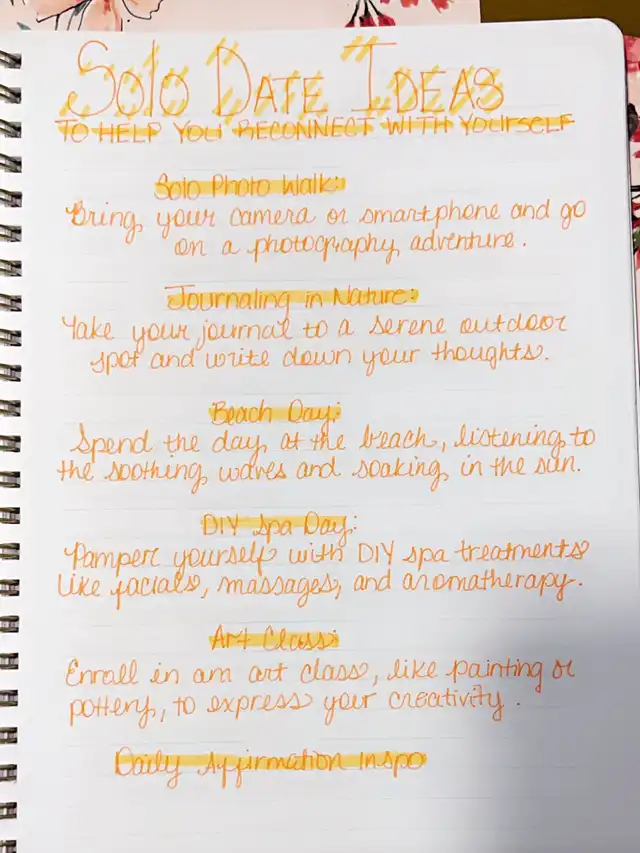 Solo Date Ideas
To Help You Reconnect With Yourself
Solo Photo Walk:
Bring your camera or smartphone and go
on a photography adventure.
Journaling in Nature:
Take your journal to a serene outdoor
spot and write down your thoughts.
Beach Day:
Spend the day at the beach, listening to
the soothing waves and soaking in the sun.
DIY Spa Day:
Pamper yourself with DIY spa treatments
like facials, massages, and aromatherapy.
Art Class:
Enroll in an art class, like painting or
pottery, to express your creativity.
Daily Affirmation Inspo